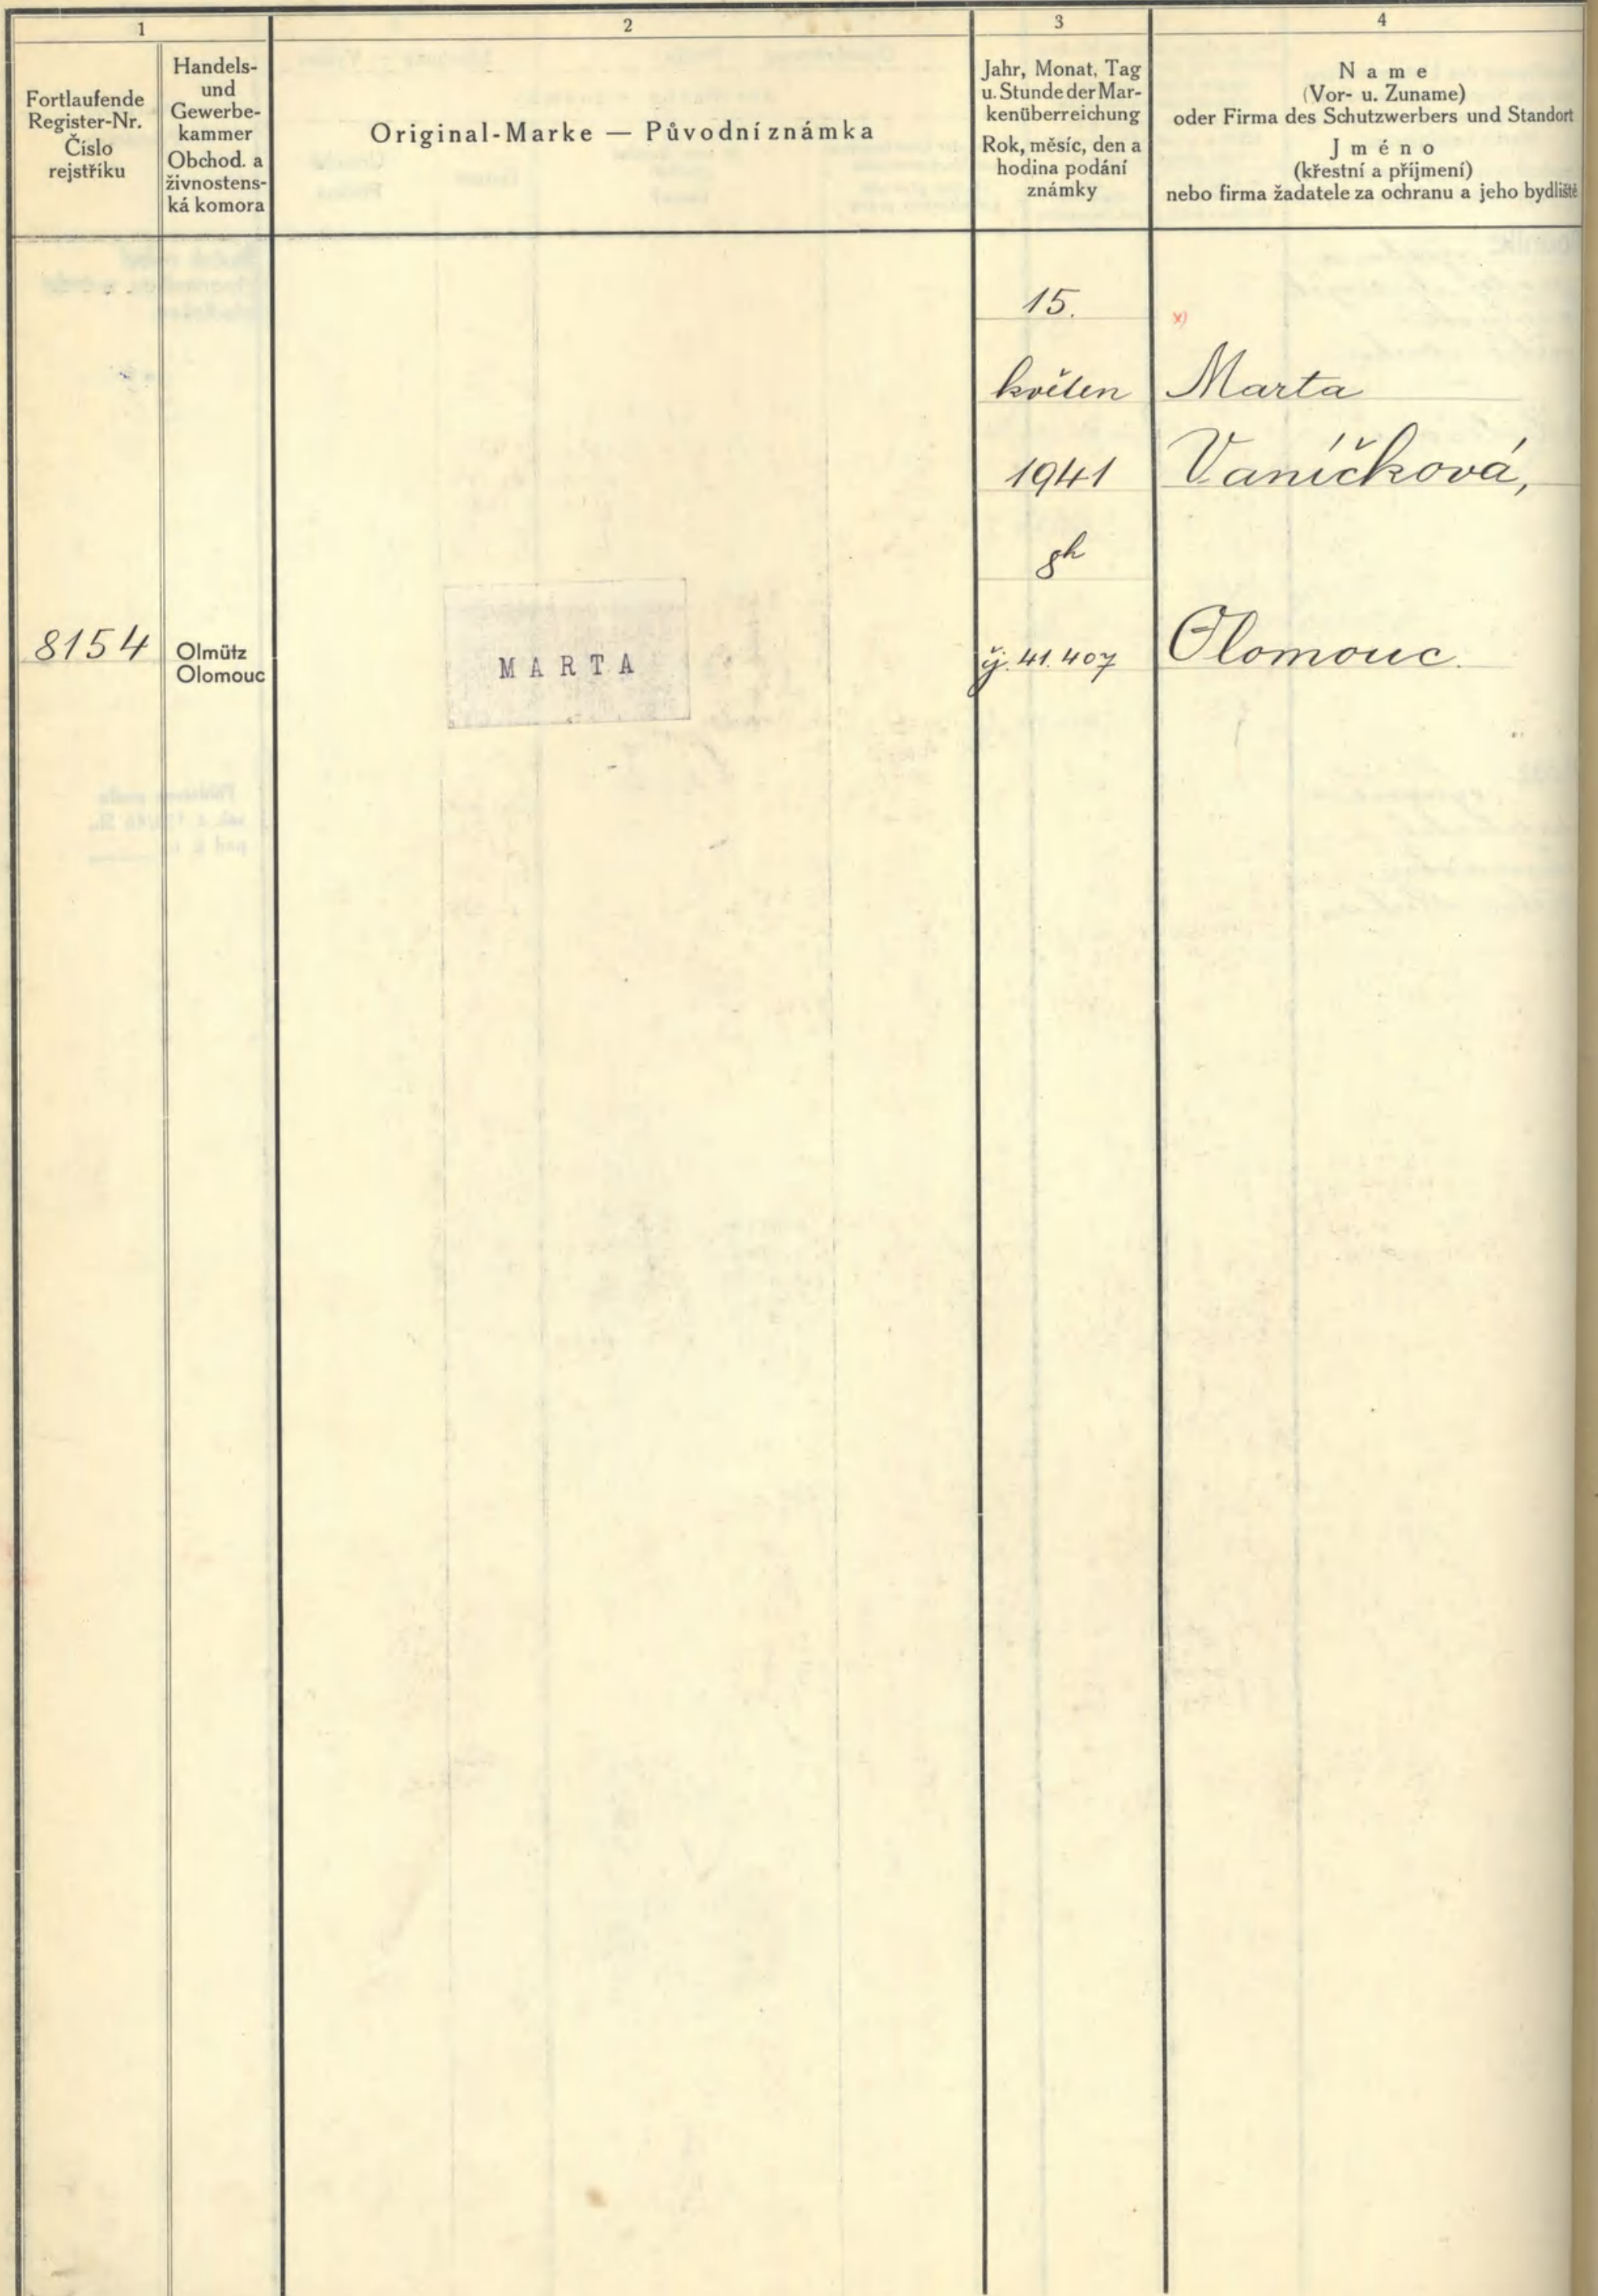 1
Fortlaufende
Register-Nr.
Číslo
rejstříku
Handels-
und
Gewerbe-
kammer
Obchod. a
živnostens-
ká komora
2
Original-Marke — Původní známka
3
Jahr, Monat, Tag
u. Stunde der Mar-
kenüberreichung
Rok, měsíc, den a
hodina podání
známky
4
Name
(Vor- u. Zuname)
oder Firma des Schutzwerbers und Standort
Jméno
(křestní a příjmení)
nebo firma žadatele za ochranu a jeho bydliště
15.
x)
květen
Marta
1941
Vaníčková,
8h
8154
Olmütz
Olomouc
MARTA
čj. 41.407
Olomouc.